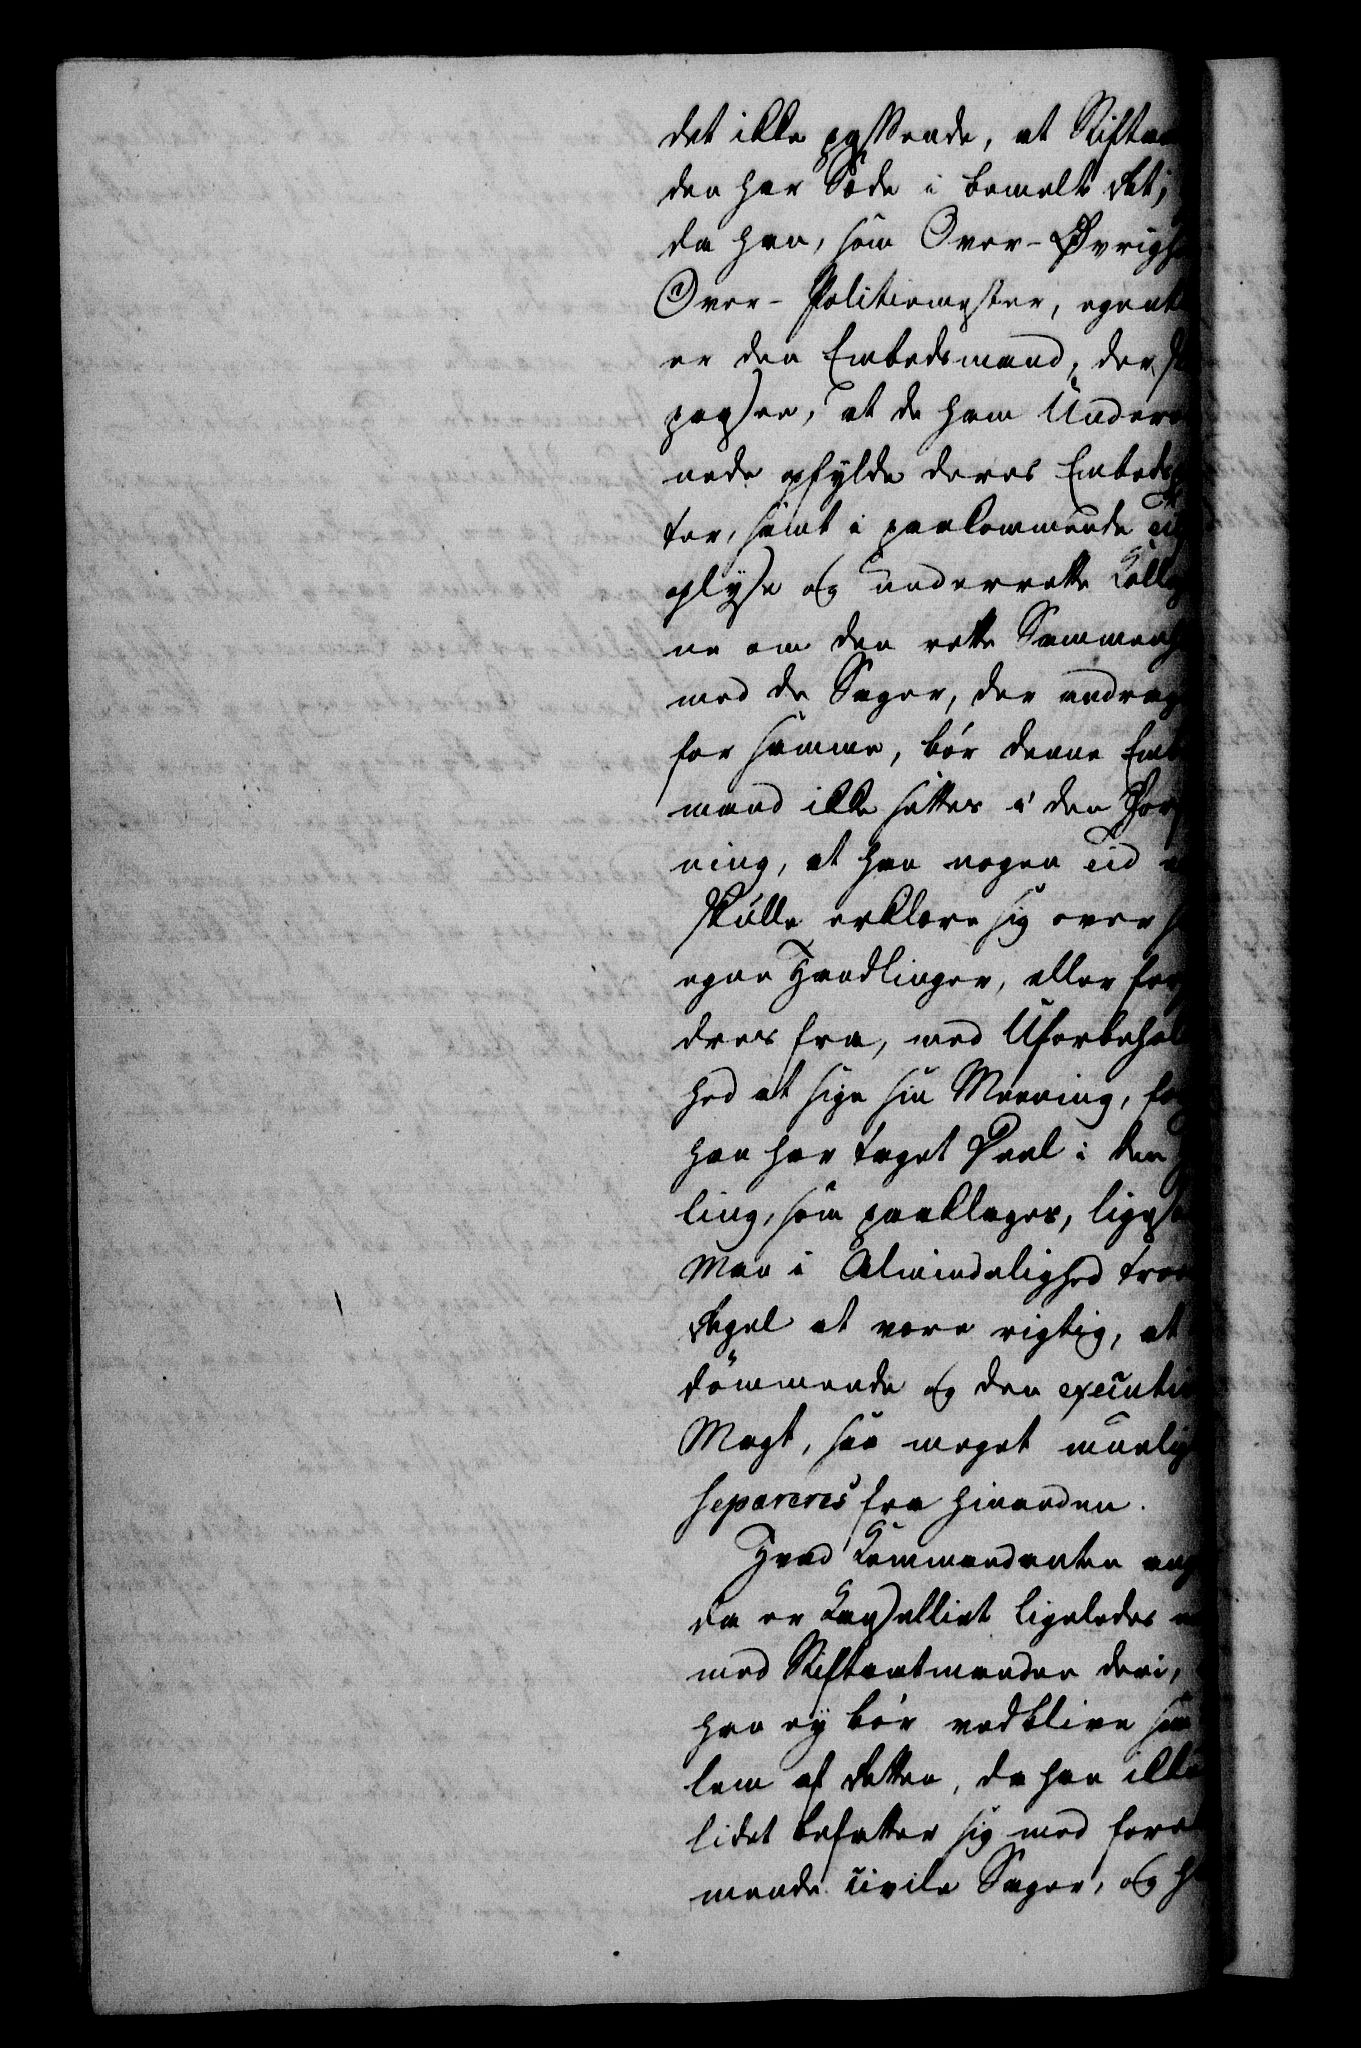 det ikke passende, at Stiftam
den har Sæde i bemelte Ret,
da han, som Over-Øvrighe
Over-Politiemester, egent
er den Embedsmand, der
paasee, at de ham Under
nede opfylde deres Embeds
ter, samt i paakommende
oplyse og underrette Colleg
ne om den rette Sammenh
med de Sager, der andrag
for samme, bør denne Emb
mand ikke sættes i den For
ning, at han nogen Tid
skulle erklære sig over
egne Handlinger, eller for
dres fra, med Uforbehol
hed at sige sin Meening, for
han har taget Deel i den
ling, som paaklages, ligeso
Man i Almindelighed troe
Regel at være rigtig, at
dømmende og den executi
Magt, saa meget muelig
separeres fra hinanden.
Hvad Commandanten ang
da er Cancelliet ligeledes
med Stiftamtmanden deri,
han ey bør vedblive som
lem af Retten, da han ikke
lidet befatter sig med forek
mende civile Sager, og h